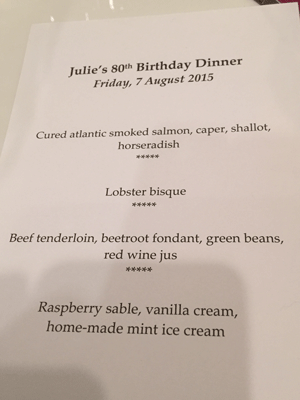 Julie's 80th Birthday Dinner
Friday, 7 August 2015
Cured atlantic smoked salmon, caper, shallot,
horseradish
*****
Lobster bisque
*****
Beef tenderloin, beetroot fondant, green beans,
red wine jus
*****
Raspberry sable, vanilla cream,
home-made mint ice cream